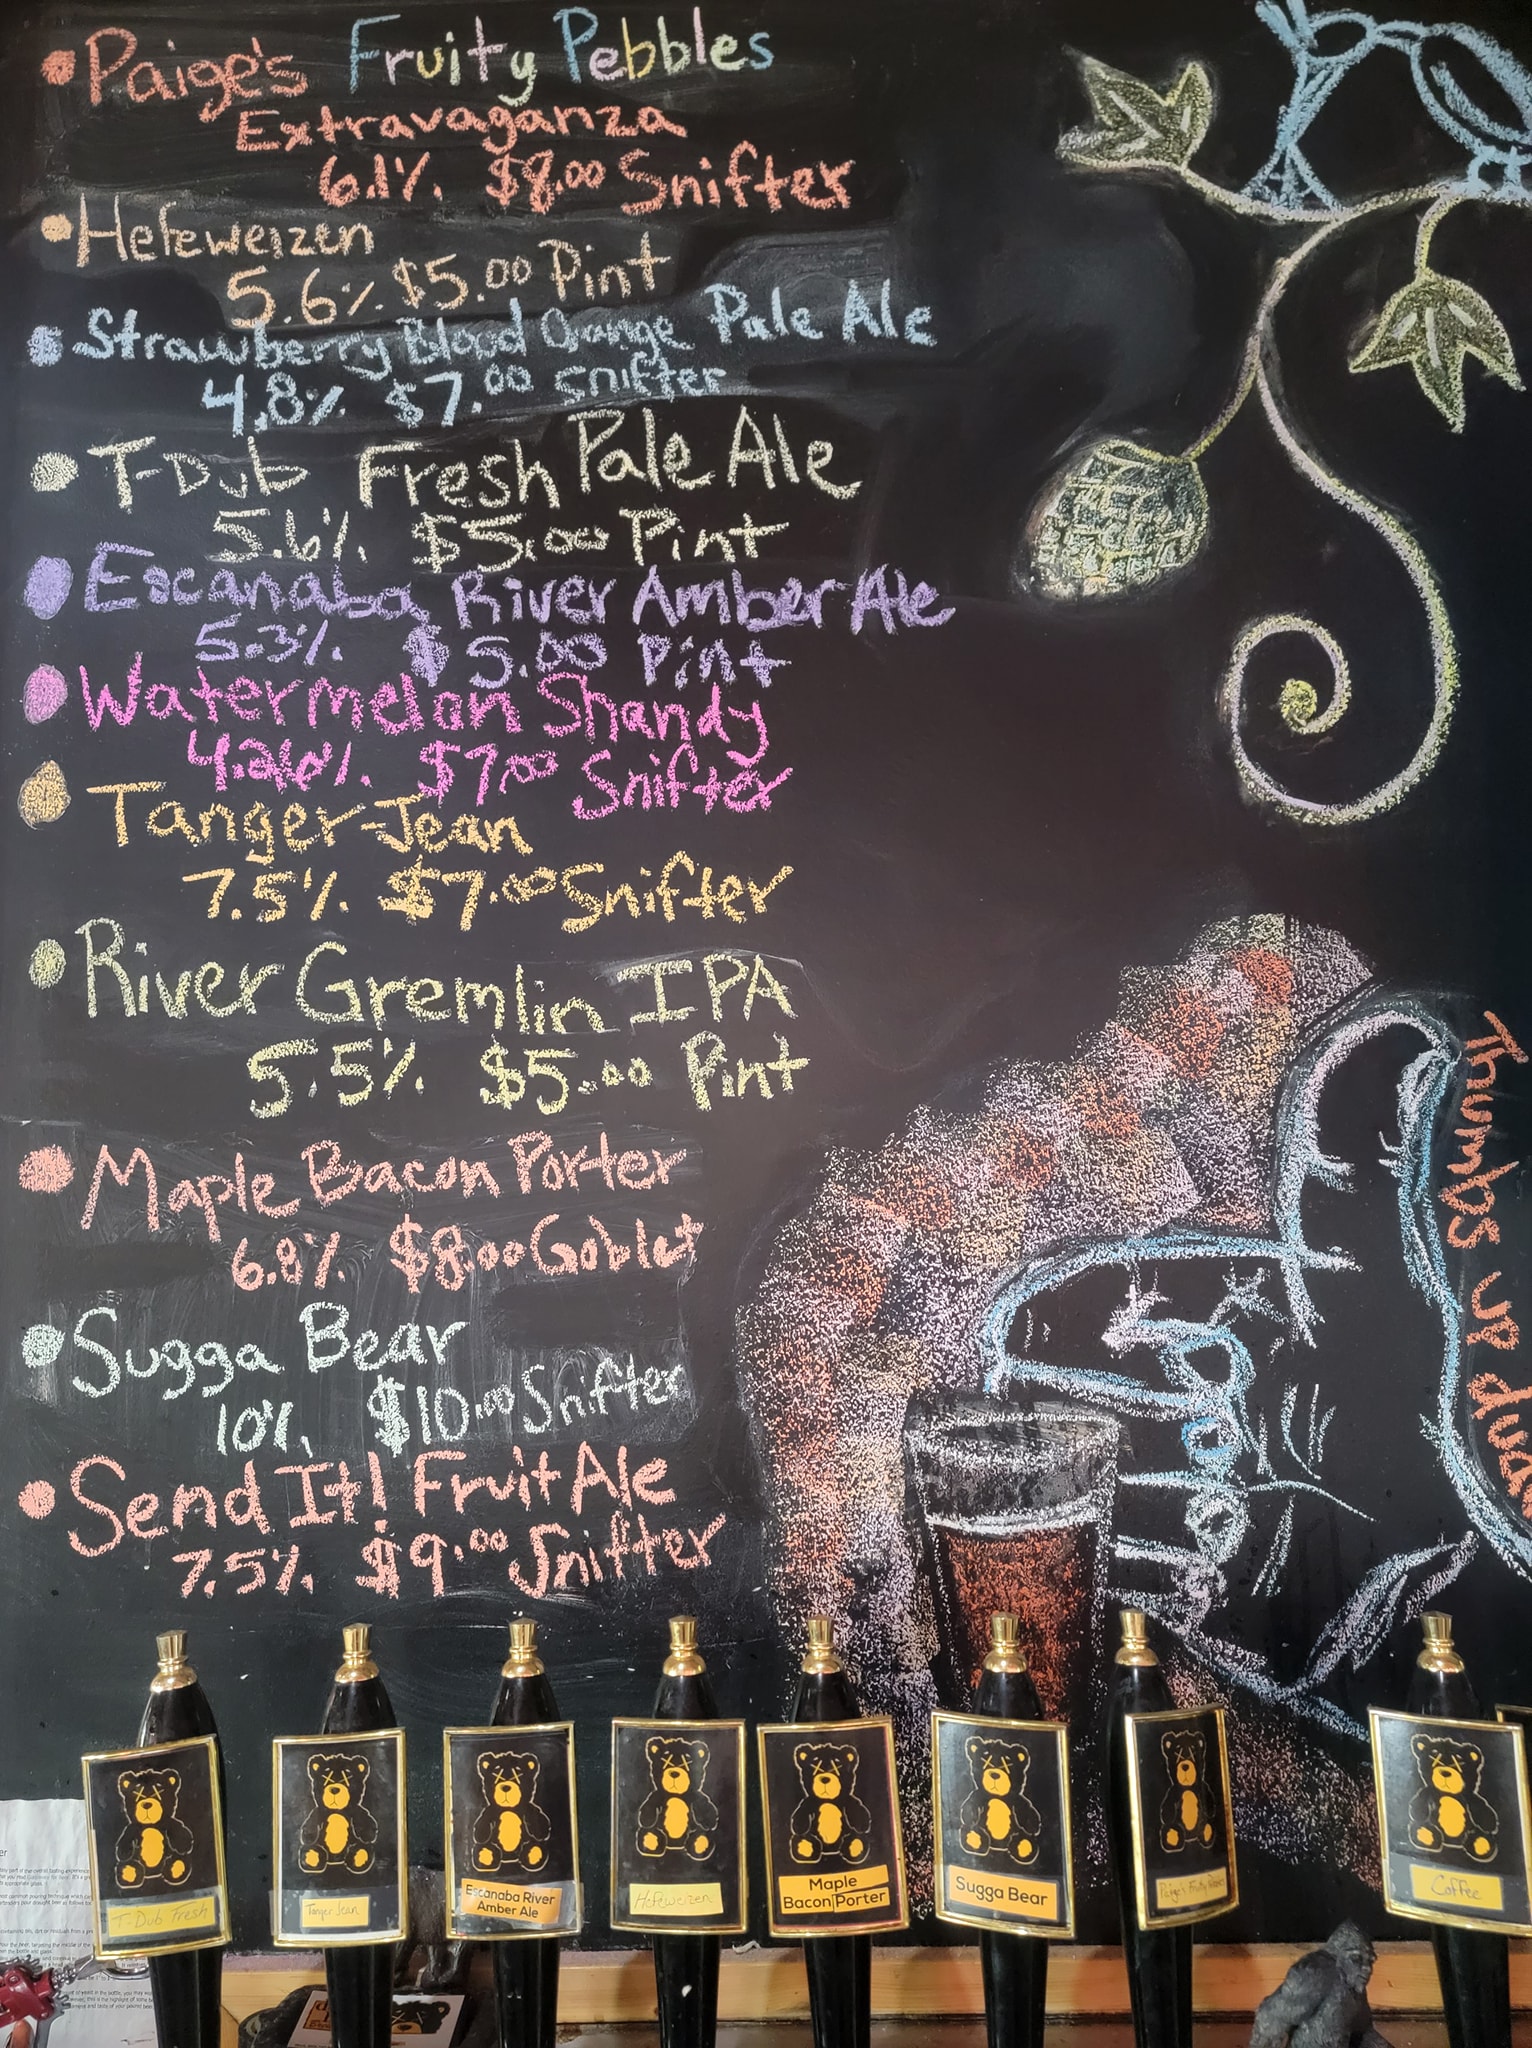 Paige's Fruity Pebbles
Extravaganza
6.1% $8.00 Snifter
Hefeweizen
5.6% $5.00 Pint
Strawberry Blood Orange Pale Ale
4.8% $7.00 Snifter
T-Dub Fresh Pale Ale
5.6% $5.00 Pint
Escanaba River Amber Ale
5.3% $5.00 Pint
Watermelon Shandy
4.26% $7.00 Snifter
Tanger-Jean
7.5% $7.00 Snifter
River Gremlin IPA
5.5% $5.00 Pint
Maple Bacon Porter
6.8% $8.00 Goblet
Sugga Bear
10% $10.00 Snifter
Send It! Fruit Ale
7.5% $9.00 Snifter
Thumbs up dude
T-Dub Fresh
Tanger Jean
Escanaba River
Amber Ale
Hefeweizen
Maple
Bacon Porter
Sugga Bear
Paige's
Coffee